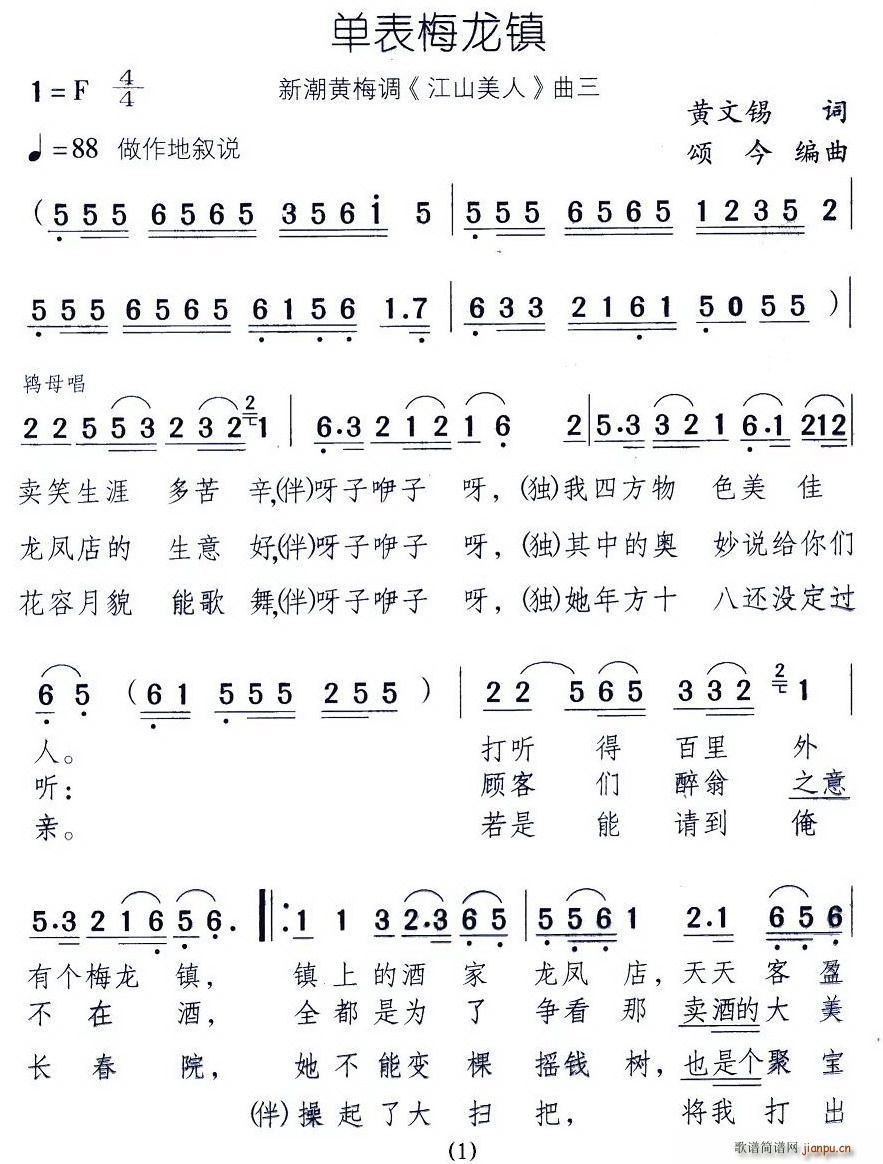 单表梅龙镇
1=F 4/4
新潮黄梅调《江山美人》曲三
黄文锡 词
♩=88 做作地叙说
颂 今 编曲
(5 5 5 6 5 6 5 3 5 6 i 5 | 5 5 5 6 5 6 5 1 2 3 5 2
5 5 5 6 5 6 5 6 1 5 6 1.7 | 6 3 3 2 1 6 1 5 0 5 5 )|
鸨母唱
2 2 5 5 3 2 3 2 2 1 | 6.3 2 1 2 1 6 2 | 5.3 3 2 1 6.1 212 |
卖笑生涯 多苦 辛,(伴)呀子咿子 呀, (独)我四方物 色美 佳
龙凤店的 生意 好,(伴)呀子咿子 呀, (独)其中的奥 妙说给你们
花容月貌 能歌 舞,(伴)呀子咿子 呀, (独)她年方十 八还没定过
6 5 (6 1 5 5 5 2 5 5 ) | 2 2 5 6 5 3 3 2 2 1 |
人。 打听 得 百里 外
听: 顾客 们 醉翁 之意
亲。 若是 能 请到 俺
5.3 2 1 6 5 6. ‖: 1 1 3 2.3 6 5 | 5 5 6 1 2.1 6 5 6 |
有个梅龙 镇, 镇上的酒 家 龙凤 店, 天天 客 盈
不 在 酒, 全都是为 了 争看 那 卖酒的 大 美
长 春 院, 她不能变 棵 摇钱 树, 也是个 聚 宝
(伴)操起了大 扫 把, 将我 打 出
(1)
歌谱简谱网 jianpu.cn